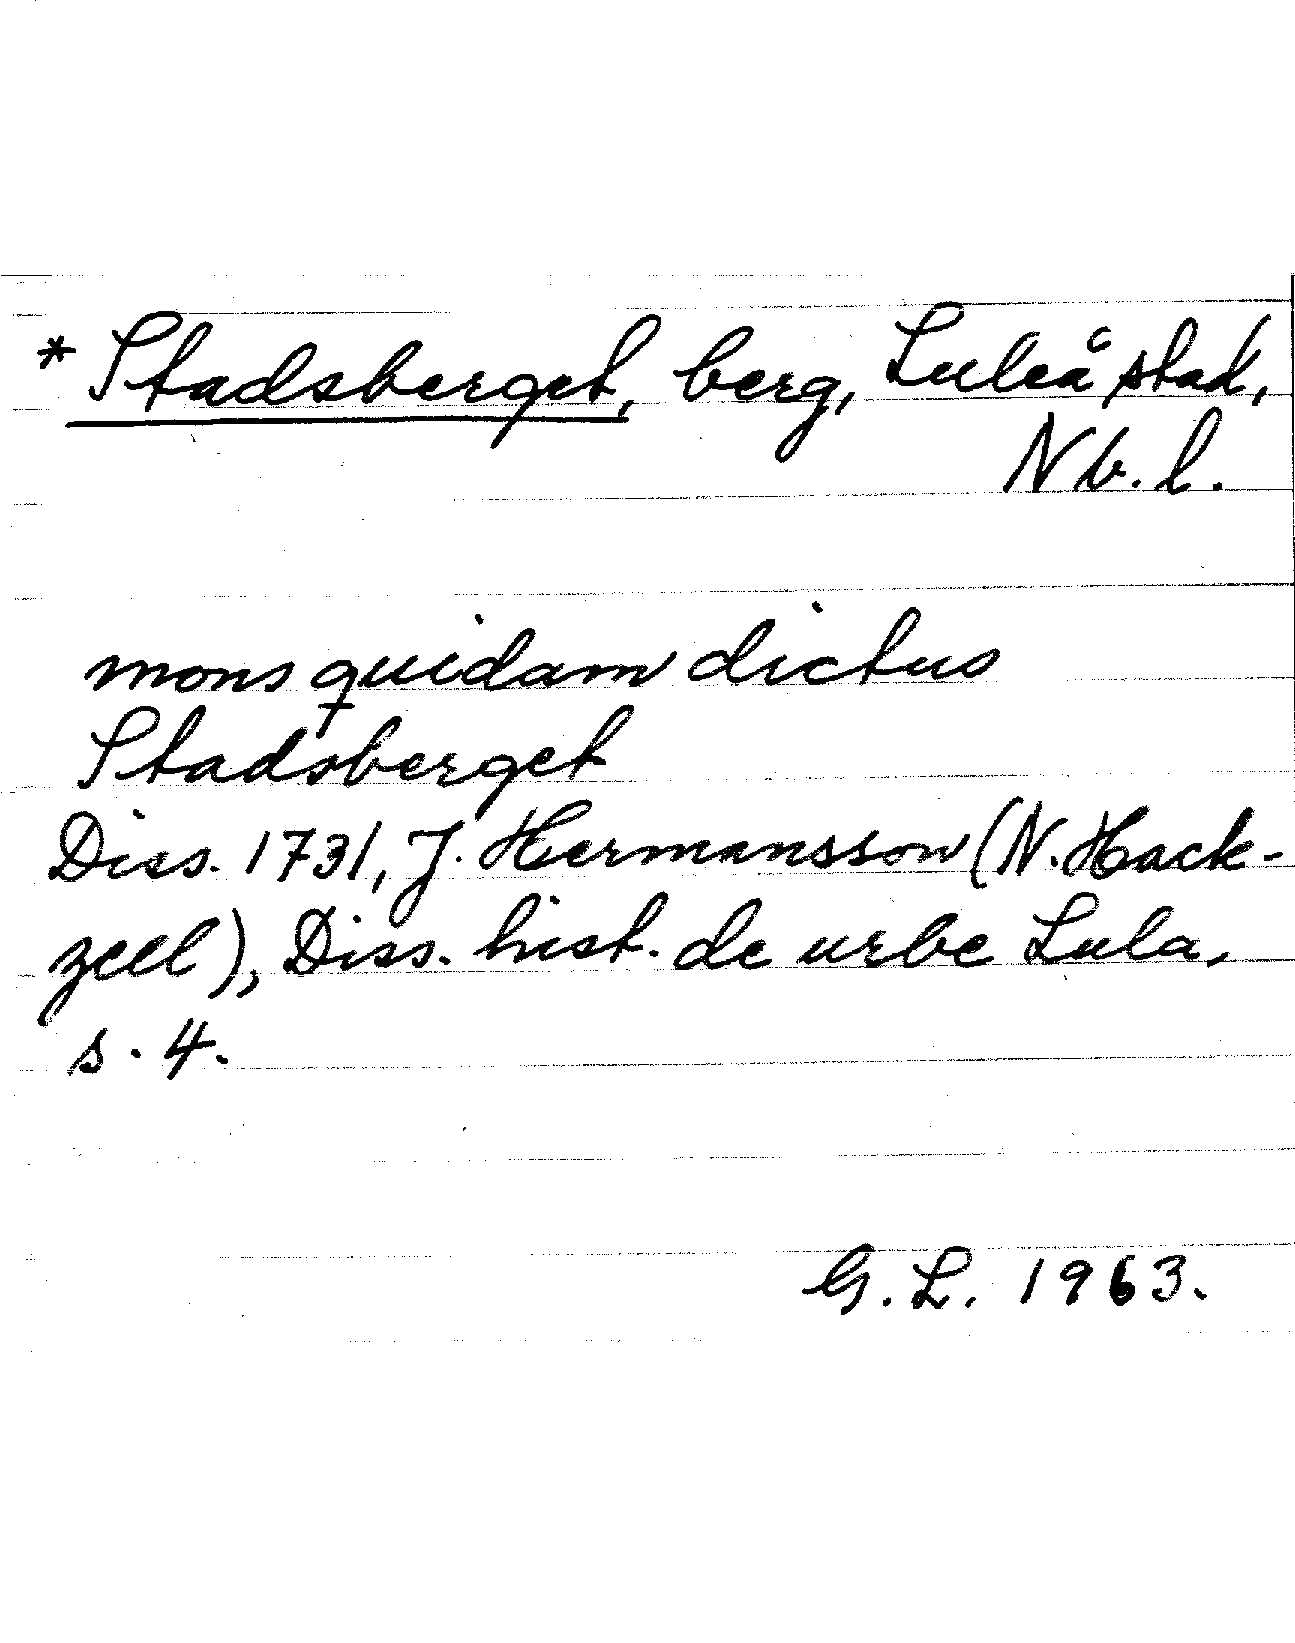 * Stadsberget, berg, Luleå stad,
Nb. l.
mons quidam dictus
Stadsberget
Diss. 1731, J. Hermansson (N. Hack-
zell), Diss. hist. de urbe Lula,
s. 4.
G. L. 1963.